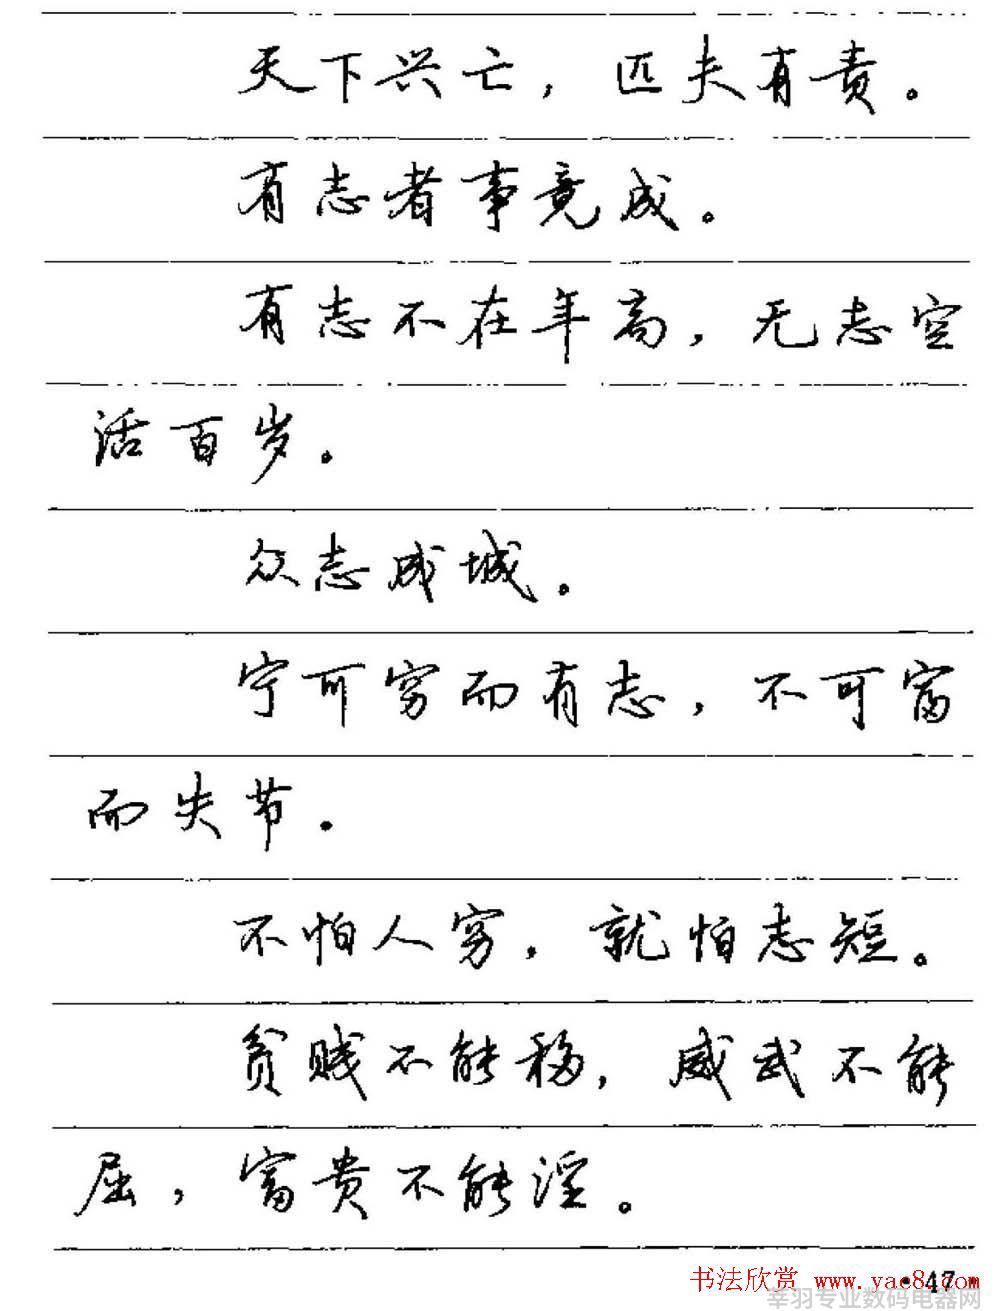 天下兴亡，匹夫有责。
有志者事竟成。
有志不在年高，无志空
活百岁。
众志成城。
宁可穷而有志，不可富
而失节。
不怕人穷，就怕志短。
贫贱不能移，威武不能
屈，富贵不能淫。
书法欣赏 www.yac8.com
·47·
莘羽专业数码电器网